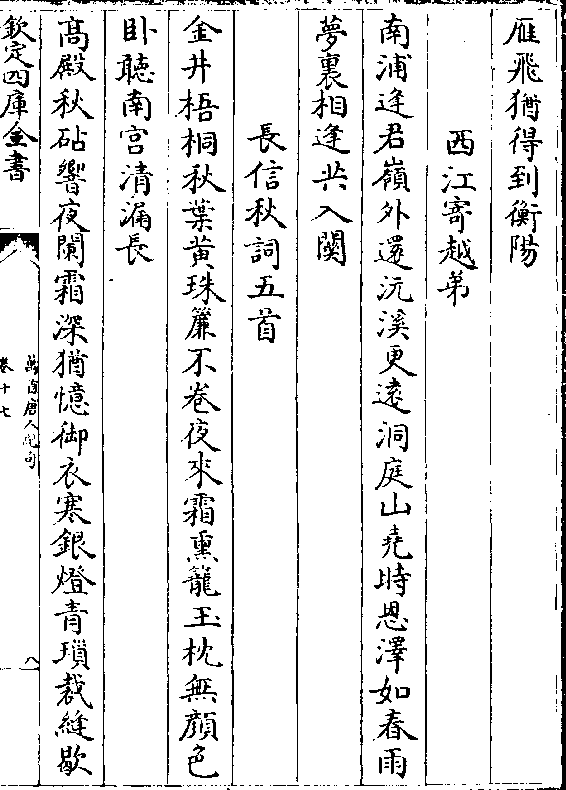 雁飛猶得到衡陽
西江寄越弟
南浦逢君嶺外還沅溪更逺洞庭山堯時恩澤如春雨
夢裏相逢共入闗
長信秋詞五首
金井梧桐秋葉黄珠簾不卷夜來霜熏籠玉枕無顔色
卧聽南宫清漏長
髙殿秋砧響夜闌霜深猶憶御衣寒銀燈青瑣裁縫歇
欽定四庫全書
萬首唐人絶句
卷十七
八